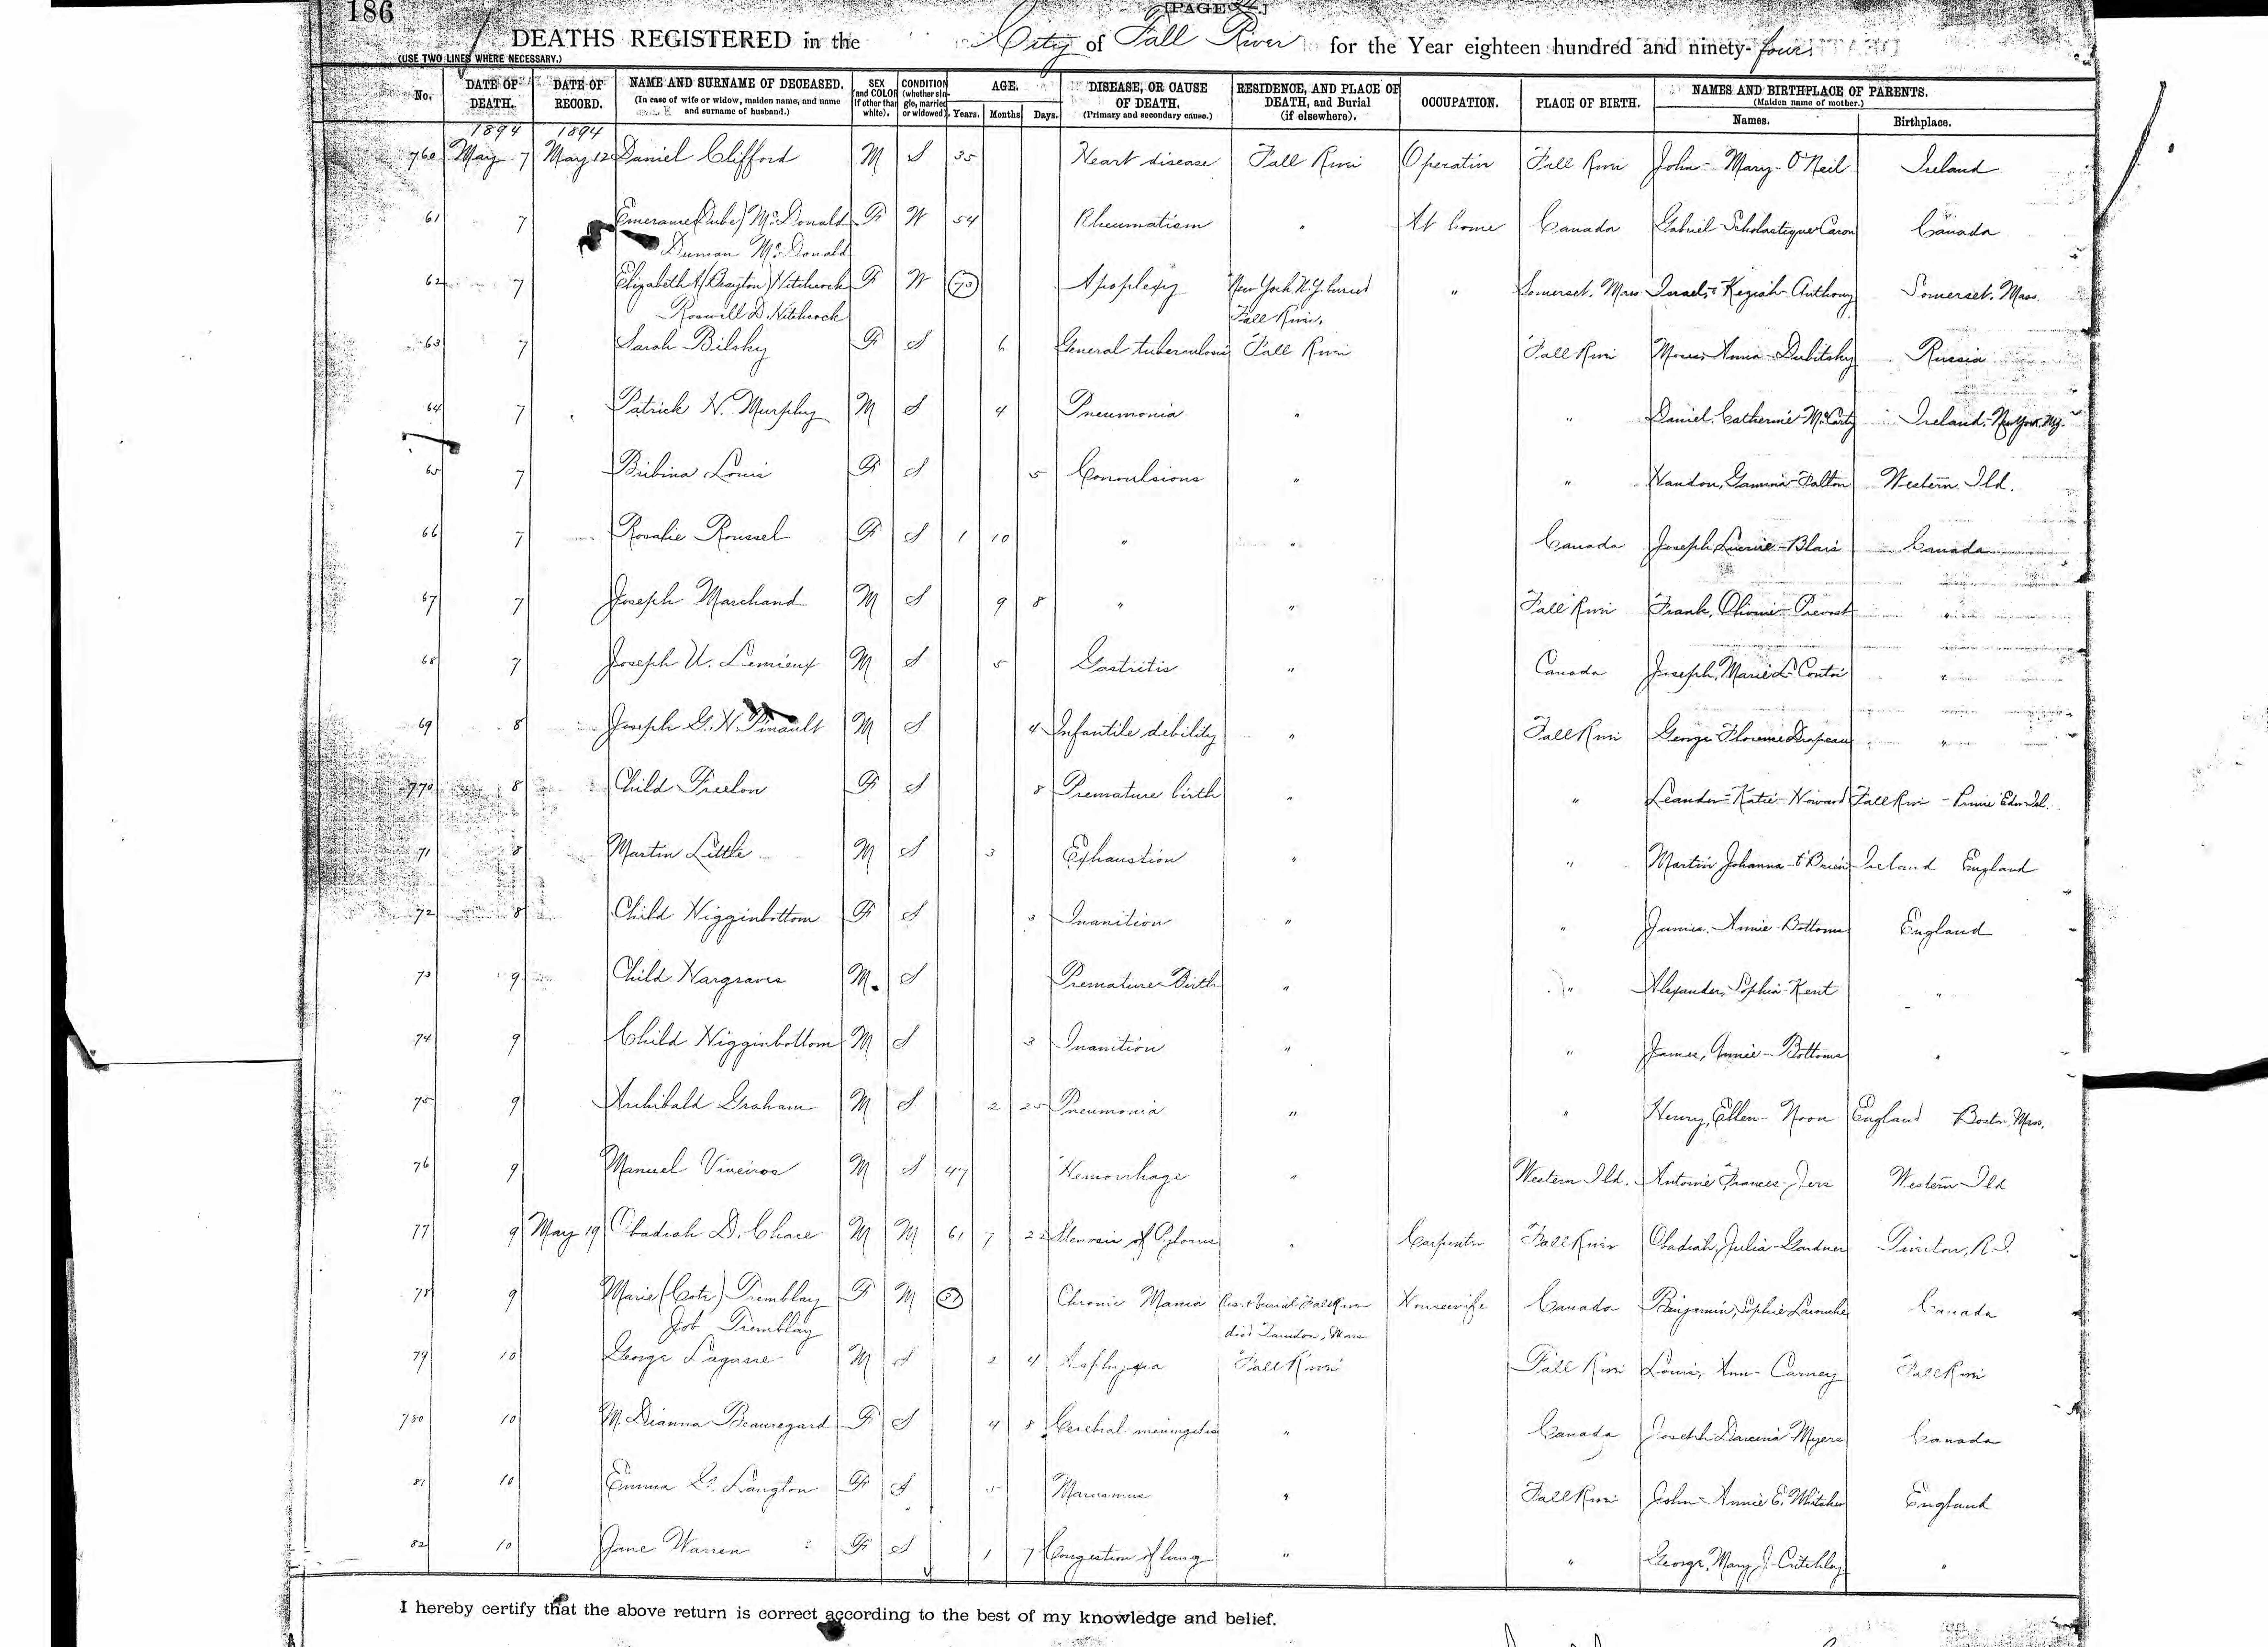 186
[PAGE
DEATHS REGISTERED in the City of Fall River for the Year eighteen hundred and ninety-four.
(USE TWO LINES WHERE NECESSARY.)
No. DATE OF DEATH. DATE OF RECORD. NAME AND SURNAME OF DECEASED. (In case of wife or widow, maiden name, and name and surname of husband.) SEX (and COLOR if other than white). CONDITION (whether single, married or widowed). AGE. Years. Months. Days. DISEASE, OR CAUSE OF DEATH. (Primary and secondary cause.) RESIDENCE, AND PLACE OF DEATH, and Burial (if elsewhere). OCCUPATION. PLACE OF BIRTH. NAMES AND BIRTHPLACE OF PARENTS. (Maiden name of mother.) Names. Birthplace.
1894 1894
760 May 7 May 12 Daniel Clifford M S 35 Heart disease Fall River Operative Fall River John - Mary - O'Neil Ireland
61 7 (Dube) McDonald F W 54 Rheumatism " At home Canada Gabriel Scholastique Caron Canada
Duncan McDonald
62 7 Elizabeth A (Brayton) Hitchcock F W 73 Apoplexy New York N.Y. buried " Somerset, Mass Israel, - Keziah - Anthony Somerset, Mass.
Roswell D. Hitchcock Fall River.
63 7 Sarah Bilsky F S 6 General tuberculosis Fall River Fall River Moses, Anna - Dubitsky Russia
64 7 Patrick H. Murphy M S 4 Pneumonia " " Daniel, Catherine McCarty Ireland - New York, N.Y.
65 7 Louis F S 5 Convulsions " " Western Ild.
66 7 Rosalie Roussel F S 1 10 " " Canada Joseph - Blais Canada
67 7 Joseph Marchand M S 9 8 " " Fall River Frank, - Prevost "
68 7 Joseph U. Lemieux M S 5 Gastritis " Canada Joseph, Marie L. "
69 8 Joseph G. H. Pinault M S 4 Infantile debility " Fall River George Florence Drapeau "
770 8 Child Freelon F S 8 Premature birth " " Leander - Katie - Howard Fall River - Prince Edw Isl.
71 8 Martin Little M S 3 Exhaustion " " Martin Johanna - O'Brien Ireland England
72 8 Child Higginbottom F S 3 Inanition " " James, Annie - Bottoms England
73 9 Child Hargraves M. S Premature Birth " " Alexander, Sophia - Kent "
74 9 Child Higginbottom M S 3 Inanition " " James, Annie - Bottoms "
75 9 Archibald Graham M S 2 25 Pneumonia " " Henry, Ellen - Noon England Boston, Mass.
76 9 Manuel Viveiros M S 47 Hemorrhage " Western Ild. Antoine Frances - Western Ild
77 9 May 19 Obadiah D. Chace M M 61 7 22 Stenosis of Pylorus " Carpenter Fall River Obadiah, Julia - Gardner Tiverton, R.I.
78 9 Marie (Cote) Tremblay F M Chronic Mania Res. & burial Fall River Housewife Canada Benjamin, Sophie Larouche Canada
Job Tremblay died Taunton, Mass
79 10 George Lagasse M S 2 4 Asphyxia Fall River Fall River Louis, Ann - Carney Fall River
780 10 M. Dianna Beauregard F S 4 8 Cerebral meningitis " Canada Joseph Myers Canada
81 10 Emma Langton F S 5 Marasmus " Fall River John - Annie E. Whitaker England
82 10 Jane Warren F S 1 7 Congestion of lung " " George, Mary J. - Critchley "
I hereby certify that the above return is correct according to the best of my knowledge and belief.